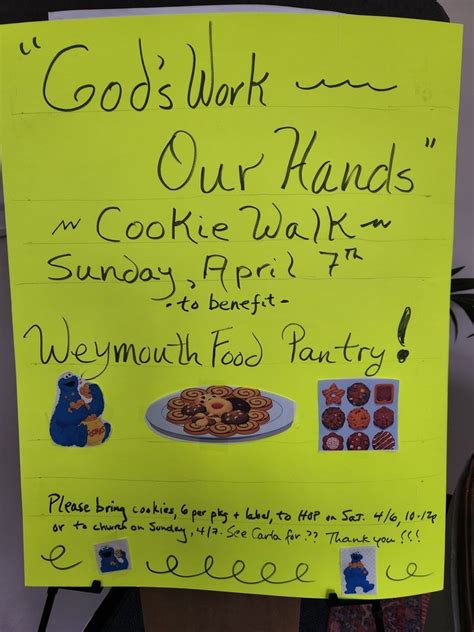 "God's Work ~
Our Hands"
~ Cookie Walk ~
Sunday, April 7th
- to benefit -
Weymouth Food Pantry!
Please bring cookies, 6 per pkg + label, to HOP on Sat. 4/6, 10-12p
or to church on Sunday, 4/7. See Carla for ?? Thank you!!!